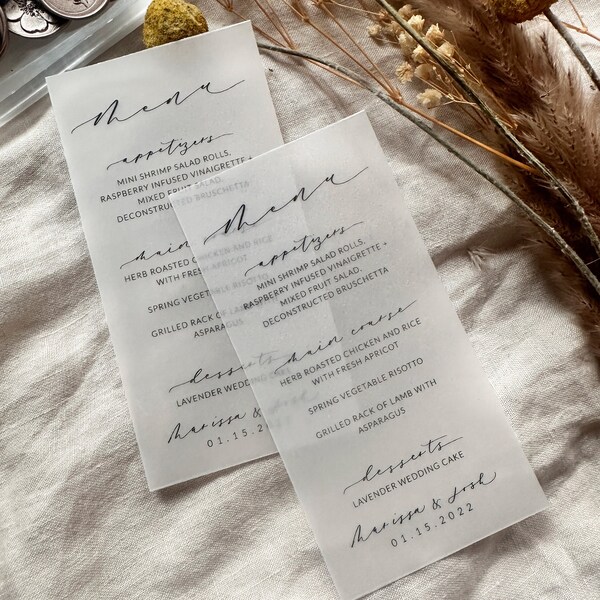 Menu
appetizers
MINI SHRIMP SALAD ROLLS,
RASPBERRY INFUSED VINAIGRETTE +
MIXED FRUIT SALAD,
DECONSTRUCTED BRUSCHETTA
main
HERB ROASTED CHICKEN AND RICE
WITH FRESH APRICOT
SPRING VEGETABLE RISOTTO
GRILLED RACK OF LAMB
ASPARAGUS
desserts
LAVENDER WEDDING CAKE
Marissa & Josh
01.15.2022
Menu
appetizers
MINI SHRIMP SALAD ROLLS,
RASPBERRY INFUSED VINAIGRETTE +
MIXED FRUIT SALAD,
DECONSTRUCTED BRUSCHETTA
main course
HERB ROASTED CHICKEN AND RICE
WITH FRESH APRICOT
SPRING VEGETABLE RISOTTO
GRILLED RACK OF LAMB WITH
ASPARAGUS
desserts
LAVENDER WEDDING CAKE
Marissa & Josh
01.15.2022